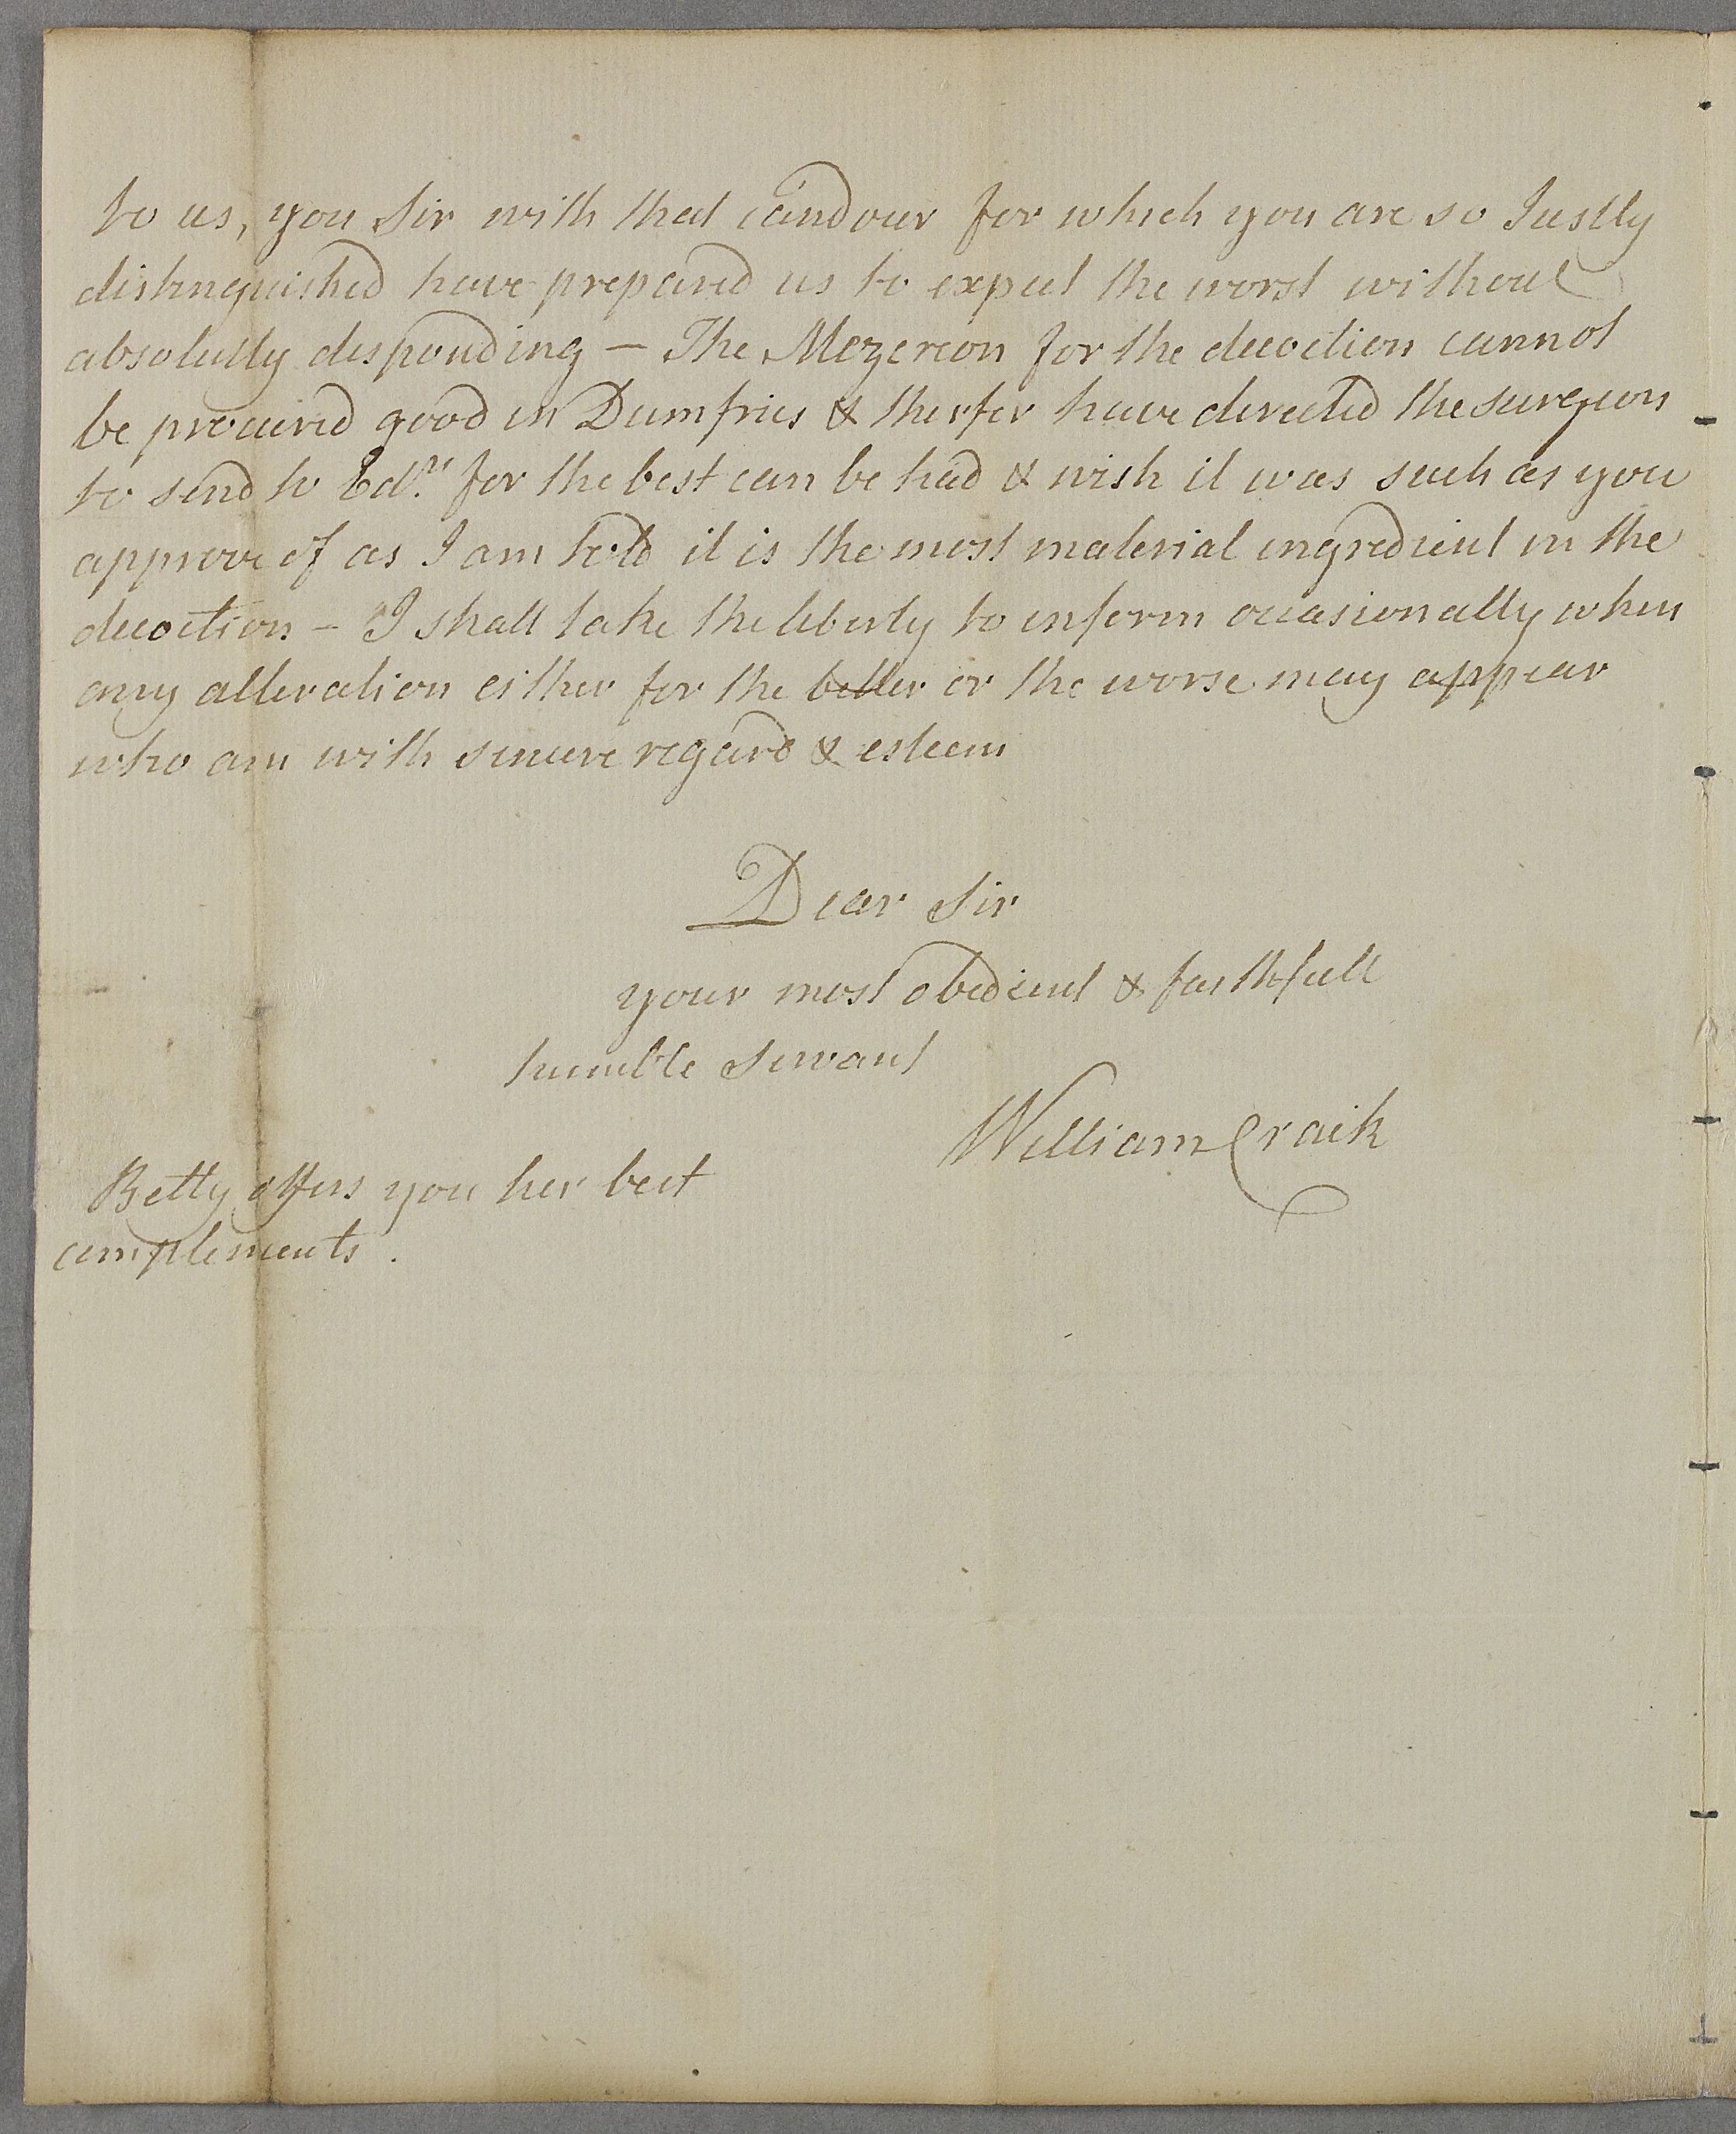 to us, you Sir with that candour for which you are so Justly
distinguished have prepared us to expect the worst without
absolutly desponding — The Mezereon for the decoction cannot
be procured good in Dumfries & therfor have directed the surgeon
to send to Edr. for the best can be had & wish it was such as you
approve of as I am told it is the most material ingredient in the
decoction - I shall take the liberty to inform occasionally when
any alteration either for the better or the worse may appear
who am with sincere regard & esteem
Dear Sir
your most obedient & faithfull
humble Servant
William Craik
Betty offers you her best
complements.